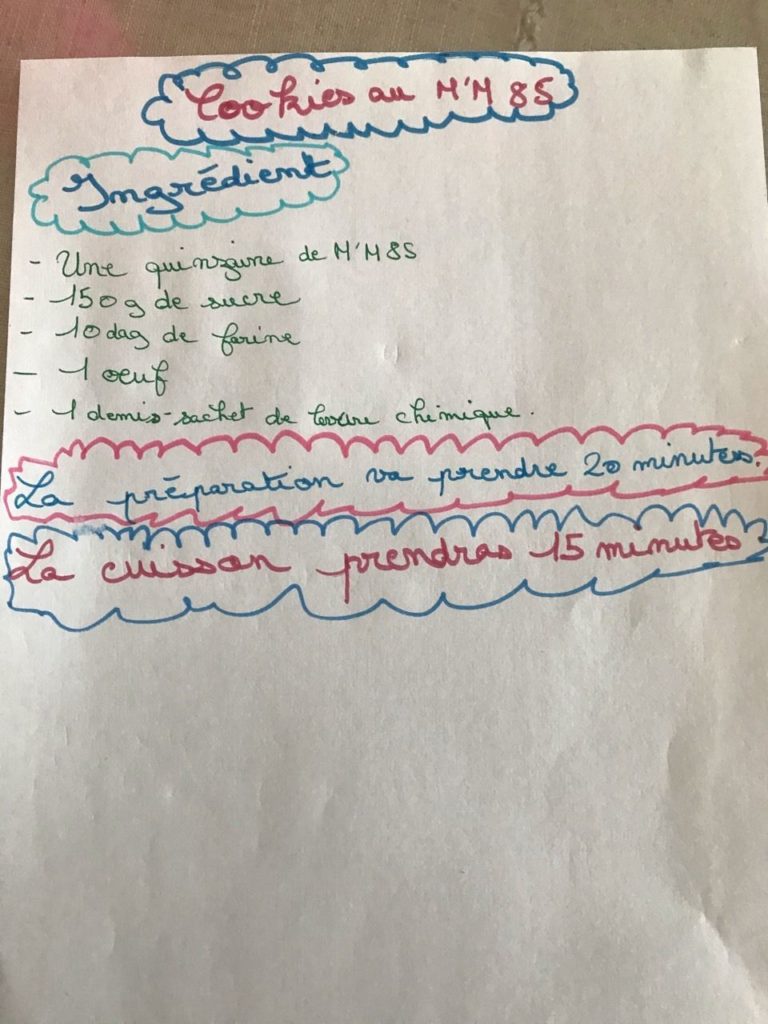 Cookies au M'M&S
Ingrédient
- Une quinzaine de M'M&S
- 150g de sucre
- 10dag de farine
- 1 oeuf
- 1 demis-sachet de levure chimique.
La préparation va prendre 20 minutes.
La cuisson prendras 15 minutes